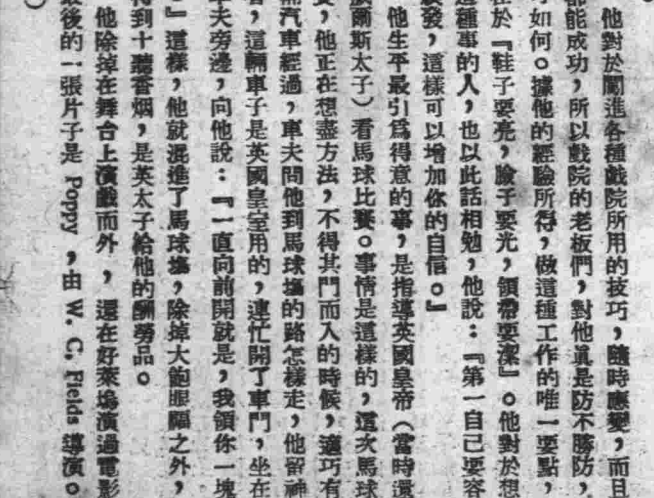 他對於闖進各種戲院所用的技巧,隨時應變,而且
都能成功,所以戲院的老板們,對他眞是防不勝防,
可如何。據他的經驗所得,做這種工作的唯一要點,
在於『鞋子要亮,臉子要光,領帶要潔』。他對於想
這種事的人,也以此話相勉,他說:『第一自己要容
發,這樣可以增加你的自信。』
他生平最引爲得意的事,是指導英國皇帝(當時還
爾斯太子)看馬球比賽。事情是這樣的,這次馬球
,他正在想盡方法,不得其門而入的時候,適巧有
汽車經過,車夫問他到馬球塲的路怎樣走,他留神
,這輛車子是英國皇室用的,連忙開了車門,坐在
車夫旁邊,向他說:『一直向前開就是,我領你一塊
』這樣,他就混進了馬球塲,除掉大飽眼福之外,
得到十聽香烟,是英太子給他的酬勞品。
他除掉在舞台上演戲而外,還在好萊塢演過電影
最後的一張片子是 Poppy,由 W. C. Fields 導演。
)